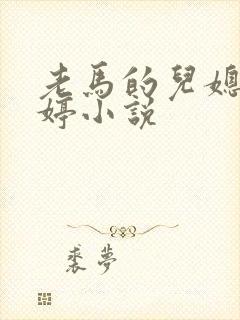 老馬的兒媳
婷小說
裘夢